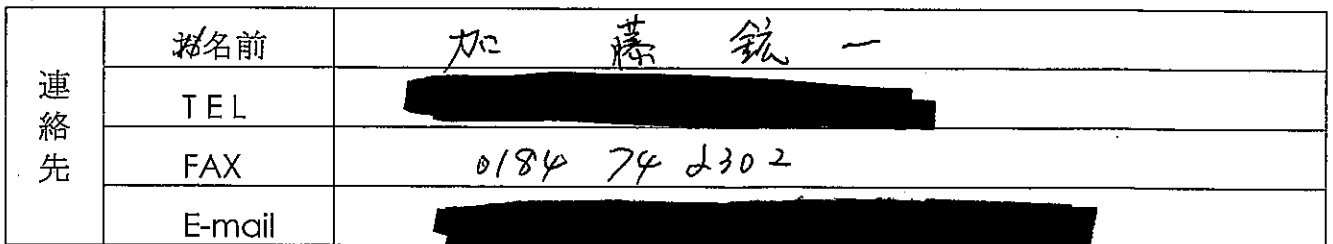 連絡先
お名前 加藤鉱一
TEL
FAX 0184 74 2302
E-mail